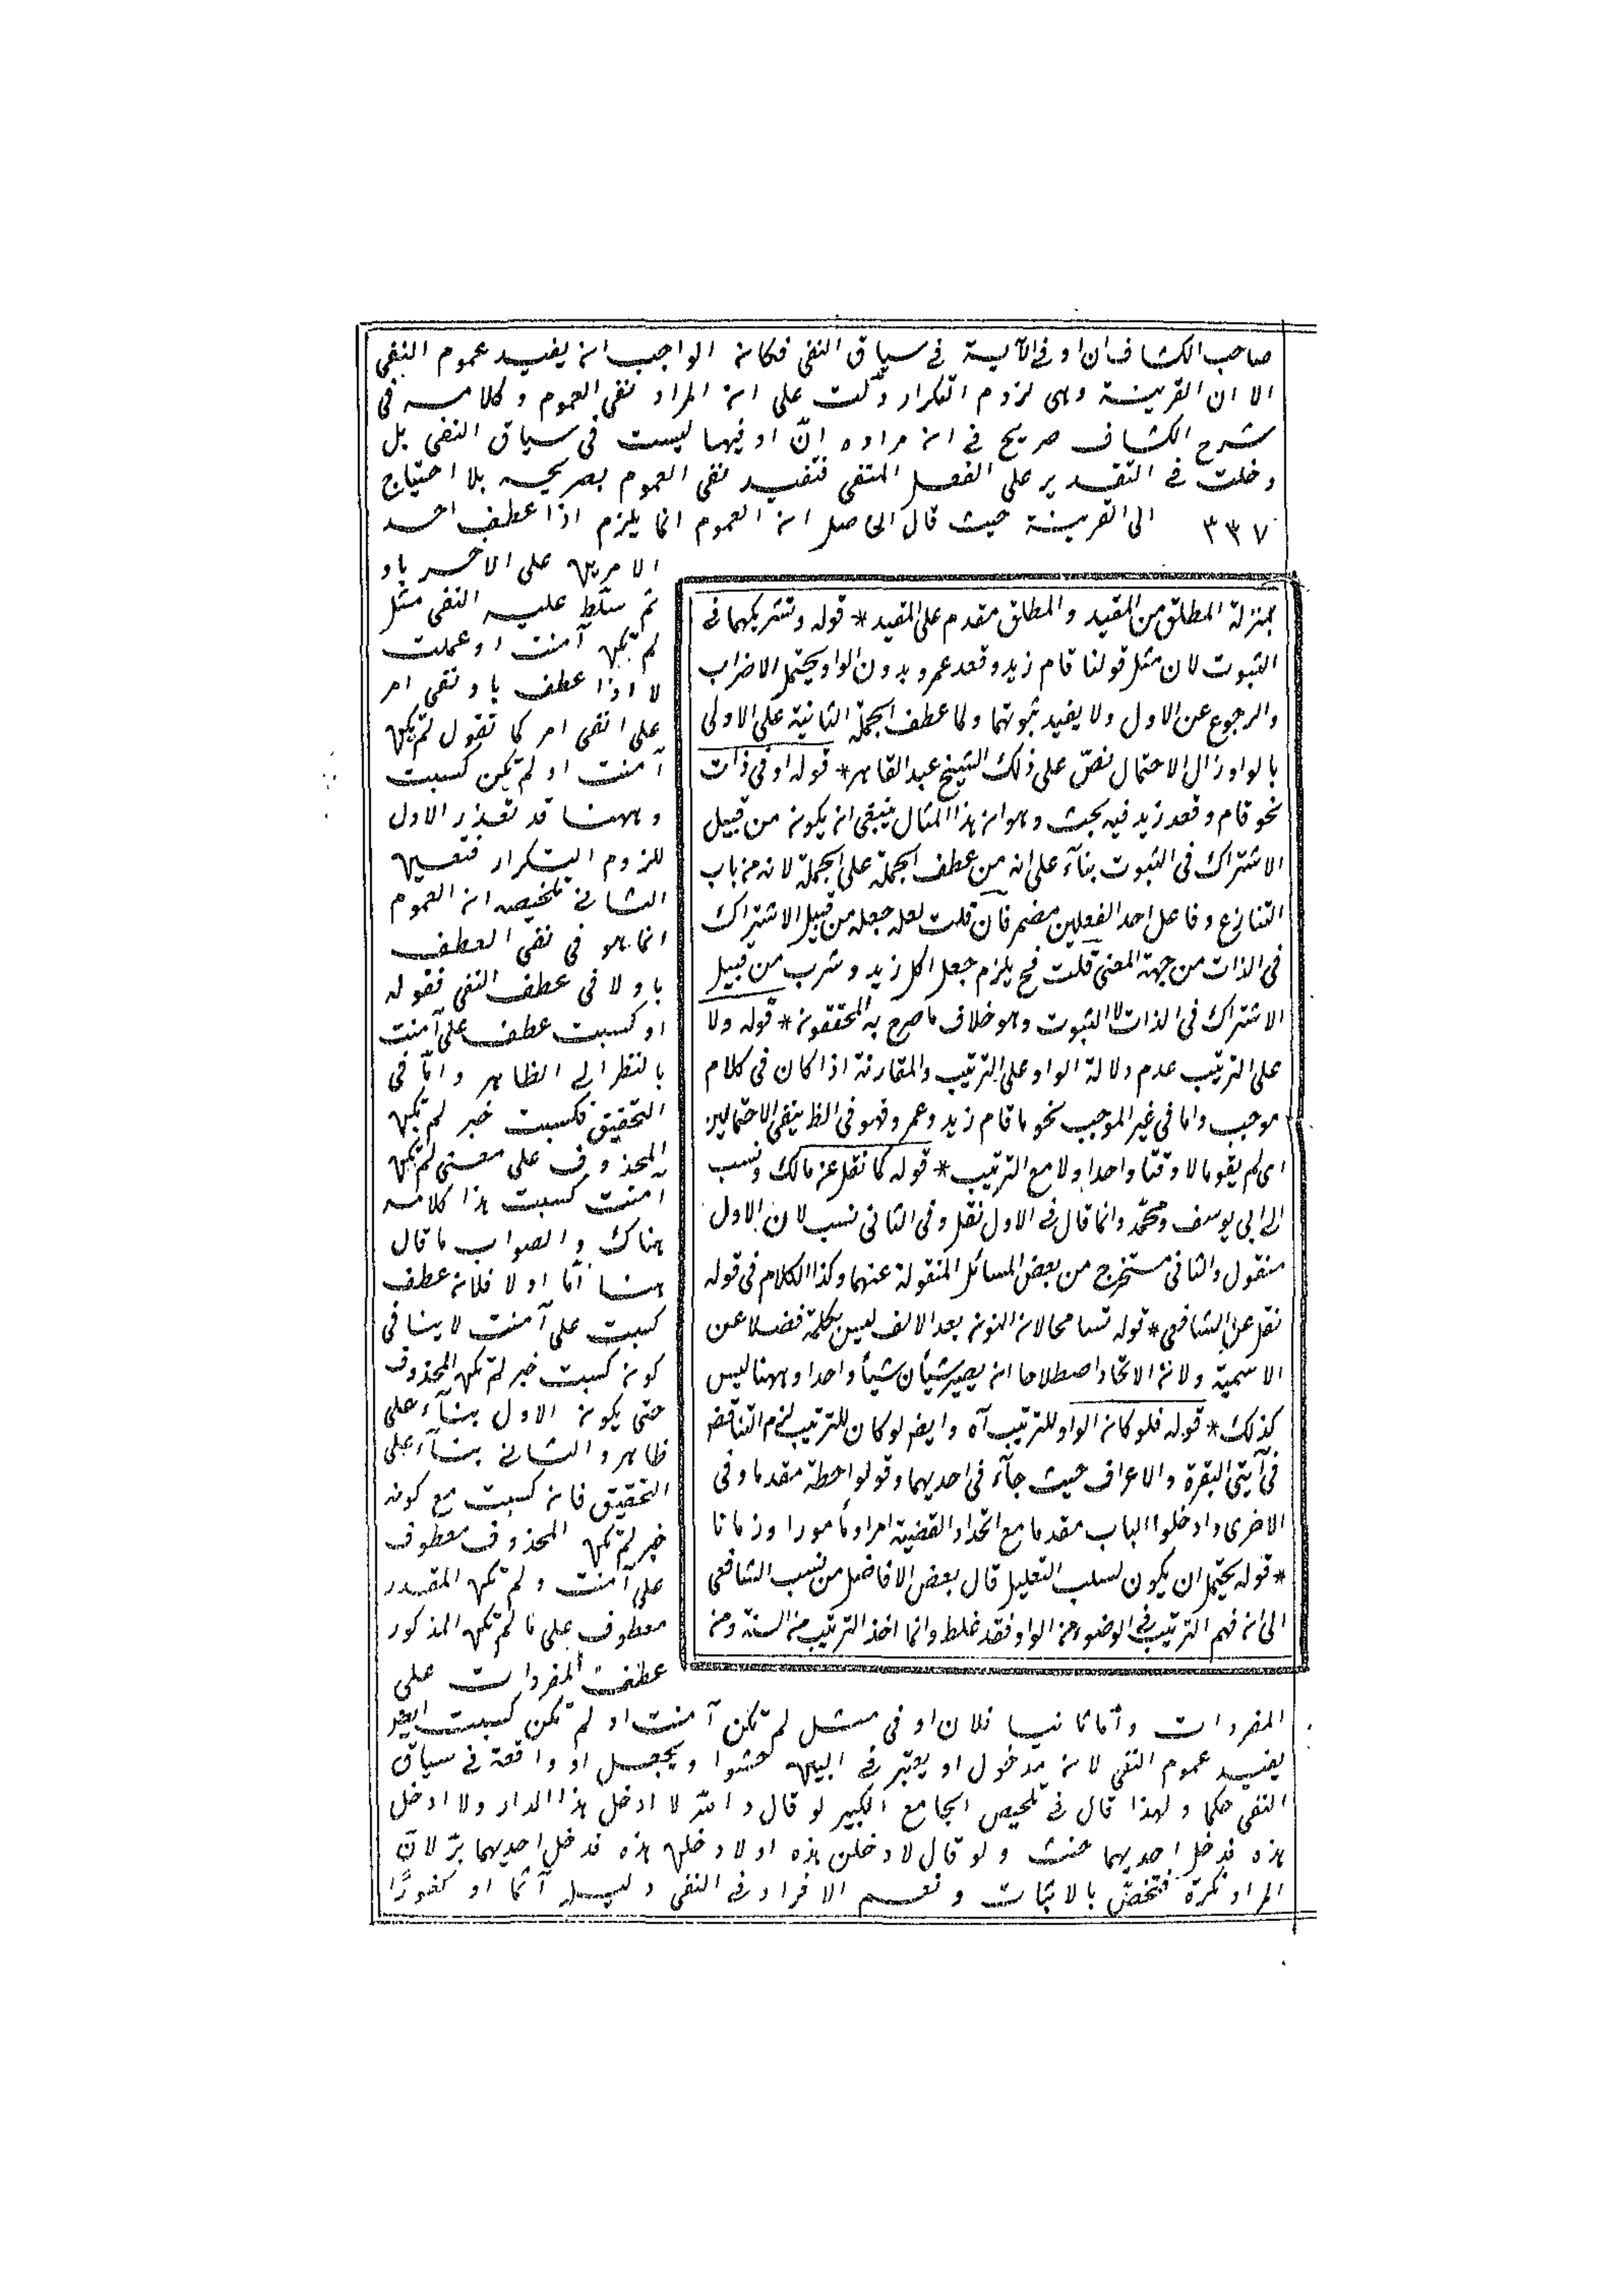 صاحب الكشاف ان او فى الآية فى سياق النفى فكان الواجب ان يفيد عموم النفى
الا ان القرينة وهى لزوم التكرار دلت على ان المراد نفى العموم وكلامه فى
شرح الكشاف صريح فى ان مراده انّ او فيها ليست فى سياق النفى بل
دخلت فى التقدير على الفعل المنفى فتفيد نفى العموم بصريحه بلا احتياج
٣٣٧ الى القرينة حيث قال الحاصل ان العموم انما يلزم اذا عطف احد
الامرين على الآخر باو
ثم سلّط عليه النفى مثل
لم تكن آمنت او عملت
لا اذا عطف باو نفى امر
على نفى امر كما تقول لم تكن
آمنت او لم تكن كسبت
وههنا قد تعذر الاول
للزوم التكرار فتعين
الثانى تلخيصه ان العموم
انما هو فى نفى العطف
باو لا فى عطف النفى فقوله
او كسبت عطف على آمنت
بالنظر الى الظاهر وامّا فى
التحقيق فكسبت خبر لم تكن
المحذوف على معنى لم تكن
آمنت كسبت هذا كلامه
هناك والصواب ما قال
هنا امّا اولا فلان عطف
كسبت على آمنت لا ينافى
كون كسبت خبر لم تكن المحذوف
حتى يكون الاول بناء على
ظاهر والثانى بناء على
التحقيق فان كسبت مع كونه
خبر لم تكن المحذوف معطوف
على آمنت ولم تكن المقدر
معطوف على ما لم تكن المذكور
عطف المفردات على
المفردات وامّا ثانيا فلان او فى مثل لم تكن آمنت او لم تكن كسبت ايضر
يفيد عموم النفى لان مدخول او يعتبر فى البين حشوا ويجعل او واقعة فى سياق
النفى حكما ولهذا قال فى تلخيص الجامع الكبير لو قال والله لا ادخل هذا الدار ولا ادخل
هذه فدخل احديهما حنث ولو قال لادخلن هذه او لادخلن هذه فدخل احديهما برّ لان
المراد نكرة فتخصّ بالاثبات وتعم الافراد فى النفى دليله آثما او كفورًا
بمنزلة المطلق من المقيد والمطلق مقدم على المقيد * قوله وتشريكهما فى
الثبوت لان مثل قولنا قام زيد وقعد عمرو بدون الواو يحتمل الاضراب
والرجوع عن الاول ولا يفيد ثبوتهما ولما عطف الجملة الثانية على الاولى
بالواو زال الاحتمال نصّ على ذلك الشيخ عبد القاهر * قوله او فى ذات
نحو قام وقعد زيد فيه بحث وهو ان هذا المثال ينبغى ان يكون من قبيل
الاشتراك فى الثبوت بناء على انه من عطف الجملة على الجملة لانه من باب
التنازع وفاعل احد الفعلين مضمر فان قلت لعله جعله من قبيل الاشتراك
فى الذات من جهة المعنى قلت فح يلزم جعل اكل زيد وشرب من قبيل
الاشتراك فى الذات لا الثبوت وهو خلاف ما صرح به المحققون * قوله ولا
على الترتيب عدم دلالة الواو على الترتيب والمقارنة اذا كان فى كلام
موجب واما فى غير الموجب نحو ما قام زيد وعمرو فهو فى الظ ينفى الاحتمالين
اى لم يقوما لا وقتا واحدا ولا مع الترتيب * قوله كما نقل عن مالك ونسب
الى ابى يوسف ومحمّد وانما قال فى الاول نقل وفى الثانى نسب لان الاول
منقول والثانى مستخرج من بعض المسائل المنقولة عنهما وكذا الكلام فى قوله
نقل عن الشافعى * قوله تسامحا لان النون بعد الالف ليس بكلمة فضلا عن
الاسمية ولان الاتحاد اصطلاحا ان يصير شيأن شيأ واحدا وههنا ليس
كذلك * قوله فلو كان الواو للترتيب آه وايضر لو كان للترتيب لزم التناقض
فى آيتى البقرة والاعراف حيث جآء فى احديهما وقولوا حطة مقدما وفى
الاخرى وادخلوا الباب مقدما مع اتحاد القضية امرا ومأمورا وزمانا
* قوله يحتمل ان يكون لسلب التعليل قال بعض الافاضل من نسب الشافعى
الى انه فهم الترتيب فى الوضوء من الواو فقد غلط وانما اخذ الترتيب من السنة ومن